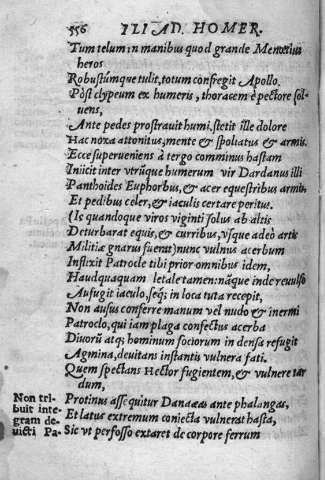 556 ILIAD. HOMER.
Tum telum in manibus quod grande Menœtius
heros
Robustúmque tulit, totum confregit Apollo.
Pòst clypeum ex humeris, thoracem è pectore sol-
uens,
Ante pedes prostrauit humi. stetit ille dolore
Hac noxa attonitus, mente & spoliatus & armis.
Ecce superueniens à tergo comminus hastam
Iniicit inter vtrúque humerum vir Dardanus illi
Panthoides Euphorbus, & acer equestribus armis,
Et pedibus celer, & iaculis certare peritus.
(Is quandoque viros viginti solus ab altis
Deturbarat equis, & curribus, vsque adeò artis
Militiæ gnarus fuerat) nunc vulnus acerbum
Inflixit Patrocle tibi prior omnibus idem,
Haudquaquam letale tamen: náque inde reuulso
Aufugit iaculo, seq; in loca tuta recepit,
Non ausus conferre manum vel nudo & inermi
Patroclo, qui iam plaga confectus acerba
Diuorū atq; hominum sociorum in densa refugit
Agmina, deuitans instantis vulnera fati.
Quem spectans Hector fugientem, & vulnere tar
dum,
Protinus assequitur Danaas ante phalangas,
Et latus extremum coniecta vulnerat hasta,
Sic vt perfosso extaret de corpore ferrum
Non tri-
buit inte-
gram de-
uicti Pa-